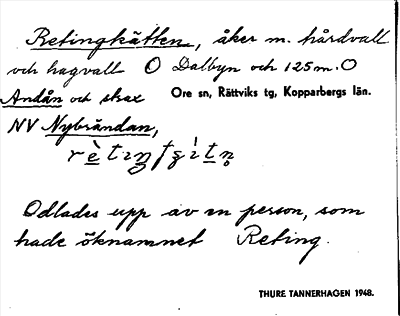 Retingkätten, åker m. hårdvall
och hagvall O Dalbyn och 125 m. O
Andån och strax Ore sn, Rättviks tg, Kopparbergs län.
NV Nybrändan,
Odlades upp av en person, som
hade öknamnet Reting.
THURE TANNERHAGEN 1948.